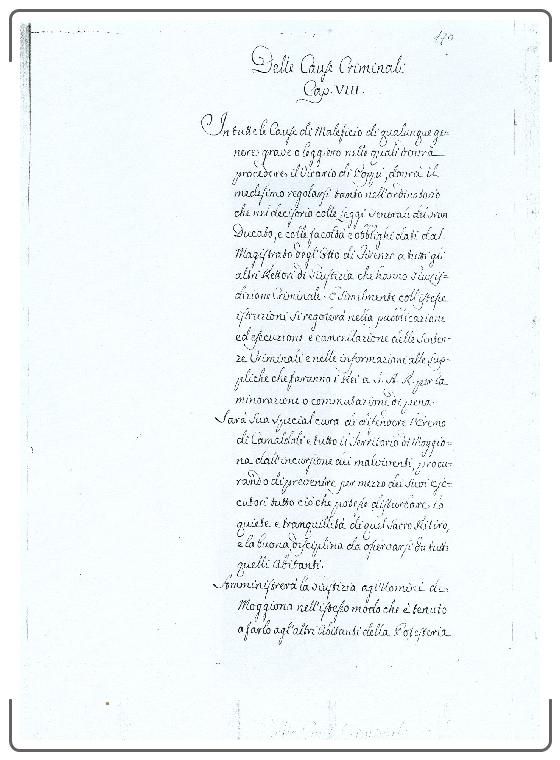 Delle Cause Criminali
Cap. VIII.
In tutte le Cause di Maleficio di qualunque ge-
nere, grave o leggiero nelle quali dovrà
procedere il Vicario di Poppi, dovrà il
medesimo regolarsi tanto nell'ordinatorio
che nel decisorio colle Leggi Generali del Gran
Ducato, e colle facoltà e obblighi dati dal
Magistrato degl'Otto di Firenze a tutti gli
altri Rettori di Giustizia che hanno Giuris-
dizione Criminale. E similmente coll'istesse
istruzioni si regolerà nella pubblicazione
ed esecuzione e cancellazione delle Senten-
ze Criminali e nelle informazioni alle sup-
pliche che faranno i Rei a S. A. R. per la
minorazione o commutazione di pena.
Sarà sua special cura di difendere l'Eremo
di Camaldoli e tutto il Territorio di Moggio-
na dall'incursione dei malviventi, procu-
rando di prevenire per mezzo dei suoi ese-
cutori tutto ciò che potesse disturbare la
quiete e tranquillità di quel Sacro Ritiro,
e la buona disciplina da osservarsi da tutti
quelli Abitanti.
Amministrerà la Giustizia agl'Uomini di
Moggiona nell'istesso modo che è tenuto
a farlo agl'altri Abitanti della Potesteria